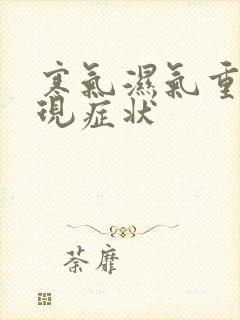 寒氣濕氣重
現症狀
荼靡